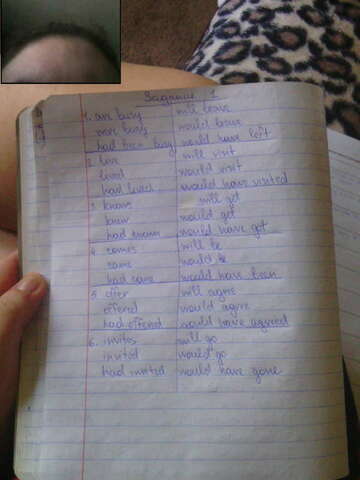 Задание 1
1. are busy will leave
were busy would leave
had been busy would have left
2. love will visit
loved would visit
had loved would have visited
3. knows will get
knew would get
had known would have got
4. comes will be
came would be
had came would have been
5. offer will agree
offered would agree
had offered would have agreed
6. invites will go
invited would go
had invited would have gone